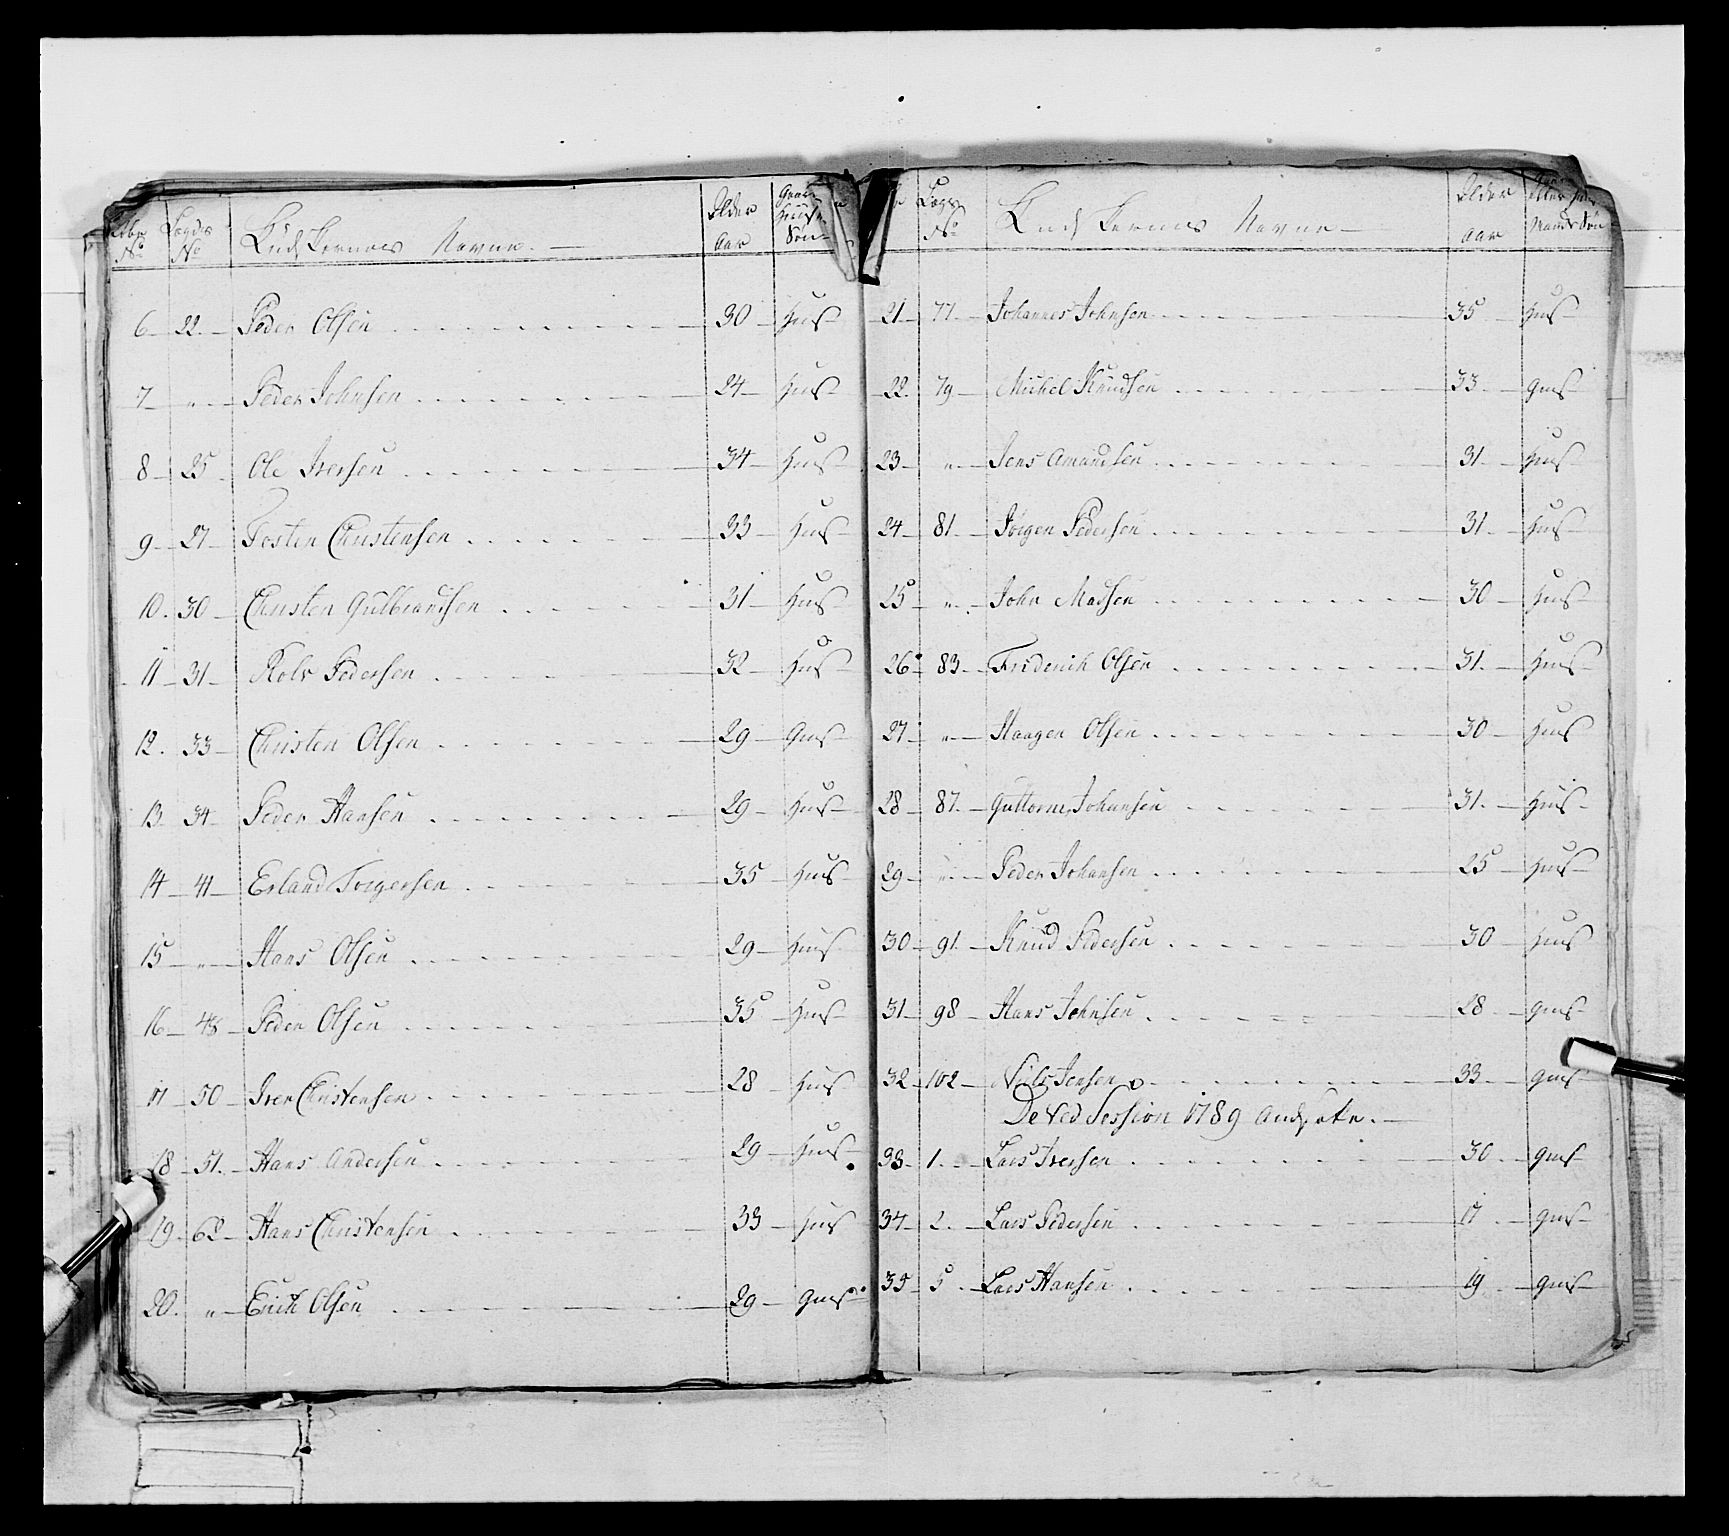 Lægds No Landskernes Navne. Alder Aar Huus Søn
6 22 Peder Olsen 30 Huus
7 " Peder Johnsen 24 Huus
8 25 Ole Iversen 34 Huus
9 27 Tosten Christensen 33 Huus
10. 30 Christen Gulbrandsen 31 Huus
11 31 Rolv Pedersen 32 Huus
12. 33 Christen Olsen 29 Gms
13 34 Peder Hansen 29 Huus
14 41 Erland Torgersen 35 Huus
15 " Hans Olsen 29 Huus
16 48 Peder Olsen 35 Huus
17 50 Iver Christensen 28 Huus
18 51. Hans Andersen 29 Huus
19 62 Hans Christensen 33 Huus
20. " Erich Olsen 29 Gms
Lægds No Landskernes Navne Alder Aar Mands Søn
21 77 Johannes Johnsen 35 Huus
22. 79 Michel Knudsen 33 Gms
23 " Jens Amundsen 31 Huus
24 81 Jørgen Pedersen 31 Huus
25 " John Madsen 30 Huus
26 83 Friderich Olsen 31 Huus
27 " Haagen Olsen 30 Huus
28 87. Guttorm Johansen 31 Huus
29 " Peder Johansen 25 Huus
30 91 Knud Pedersen 30 Huus
31 98 Hans Johnsen 28 Gms
32 102 Niels Jensen 33 Gms
De Ved Session 1789 Andsatte.
33 1. Lars Iversen 30 Gms
34 2. Lars Pedersen 17 Gms
35 5 Lars Hansen 19 Gms